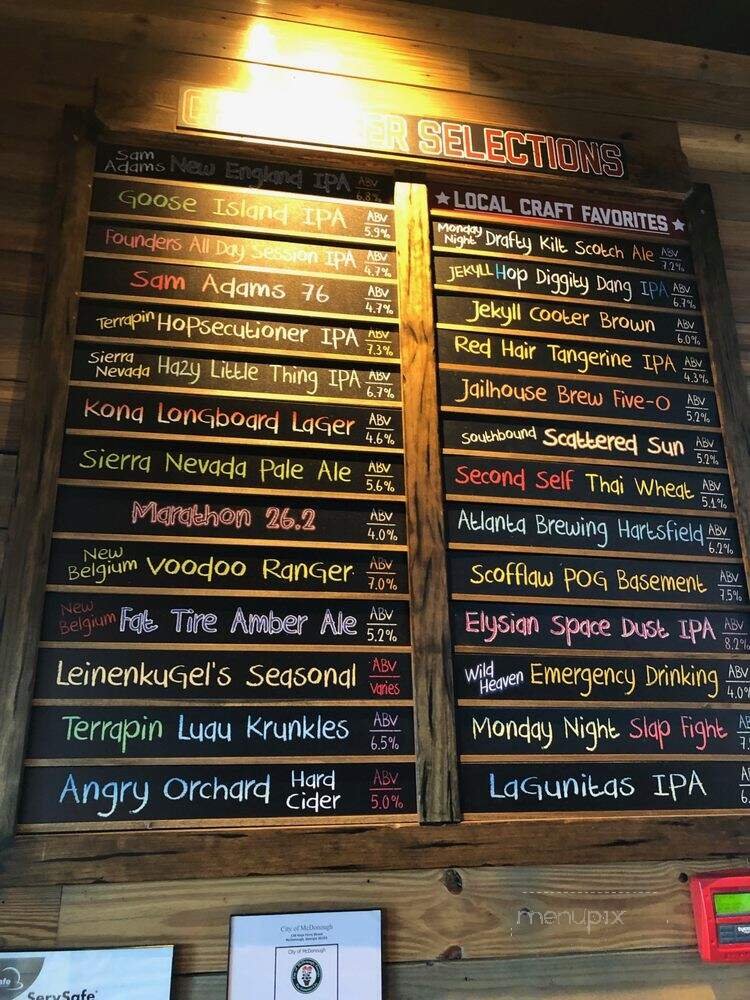 ER SELECTIONS
Sam Adams New England IPA ABV 6.8%
Goose Island IPA ABV 5.9%
Founders All Day Session IPA ABV 4.7%
Sam Adams 76 ABV 4.7%
Terrapin HopSecutioner IPA ABV 7.3%
Sierra Nevada Hazy Little Thing IPA ABV 6.7%
Kona Longboard Lager ABV 4.6%
Sierra Nevada Pale Ale ABV 5.6%
Marathon 26.2 ABV 4.0%
New Belgium Voodoo Ranger ABV 7.0%
New Belgium Fat Tire Amber Ale ABV 5.2%
Leinenkugel's Seasonal ABV Varies
Terrapin Luau Krunkles ABV 6.5%
Angry Orchard Hard Cider ABV 5.0%
★ LOCAL CRAFT FAVORITES ★
Monday Night Drafty Kilt Scotch Ale ABV 7.2%
JEKYLL Hop Diggity Dang IPA ABV 6.7%
Jekyll Cooter Brown ABV 6.0%
Red Hair Tangerine IPA ABV 4.3%
Jailhouse Brew Five-O ABV 5.2%
Southbound Scattered Sun ABV 5.2%
Second Self Thai Wheat ABV 5.1%
Atlanta Brewing Hartsfield ABV 6.2%
Scofflaw POG Basement ABV 7.5%
Elysian Space Dust IPA ABV 8.2%
Wild Heaven Emergency Drinking ABV 4.0%
Monday Night Slap Fight
LaGunitas IPA
menupix
City of McDonough
City of McDonough
ServSafe